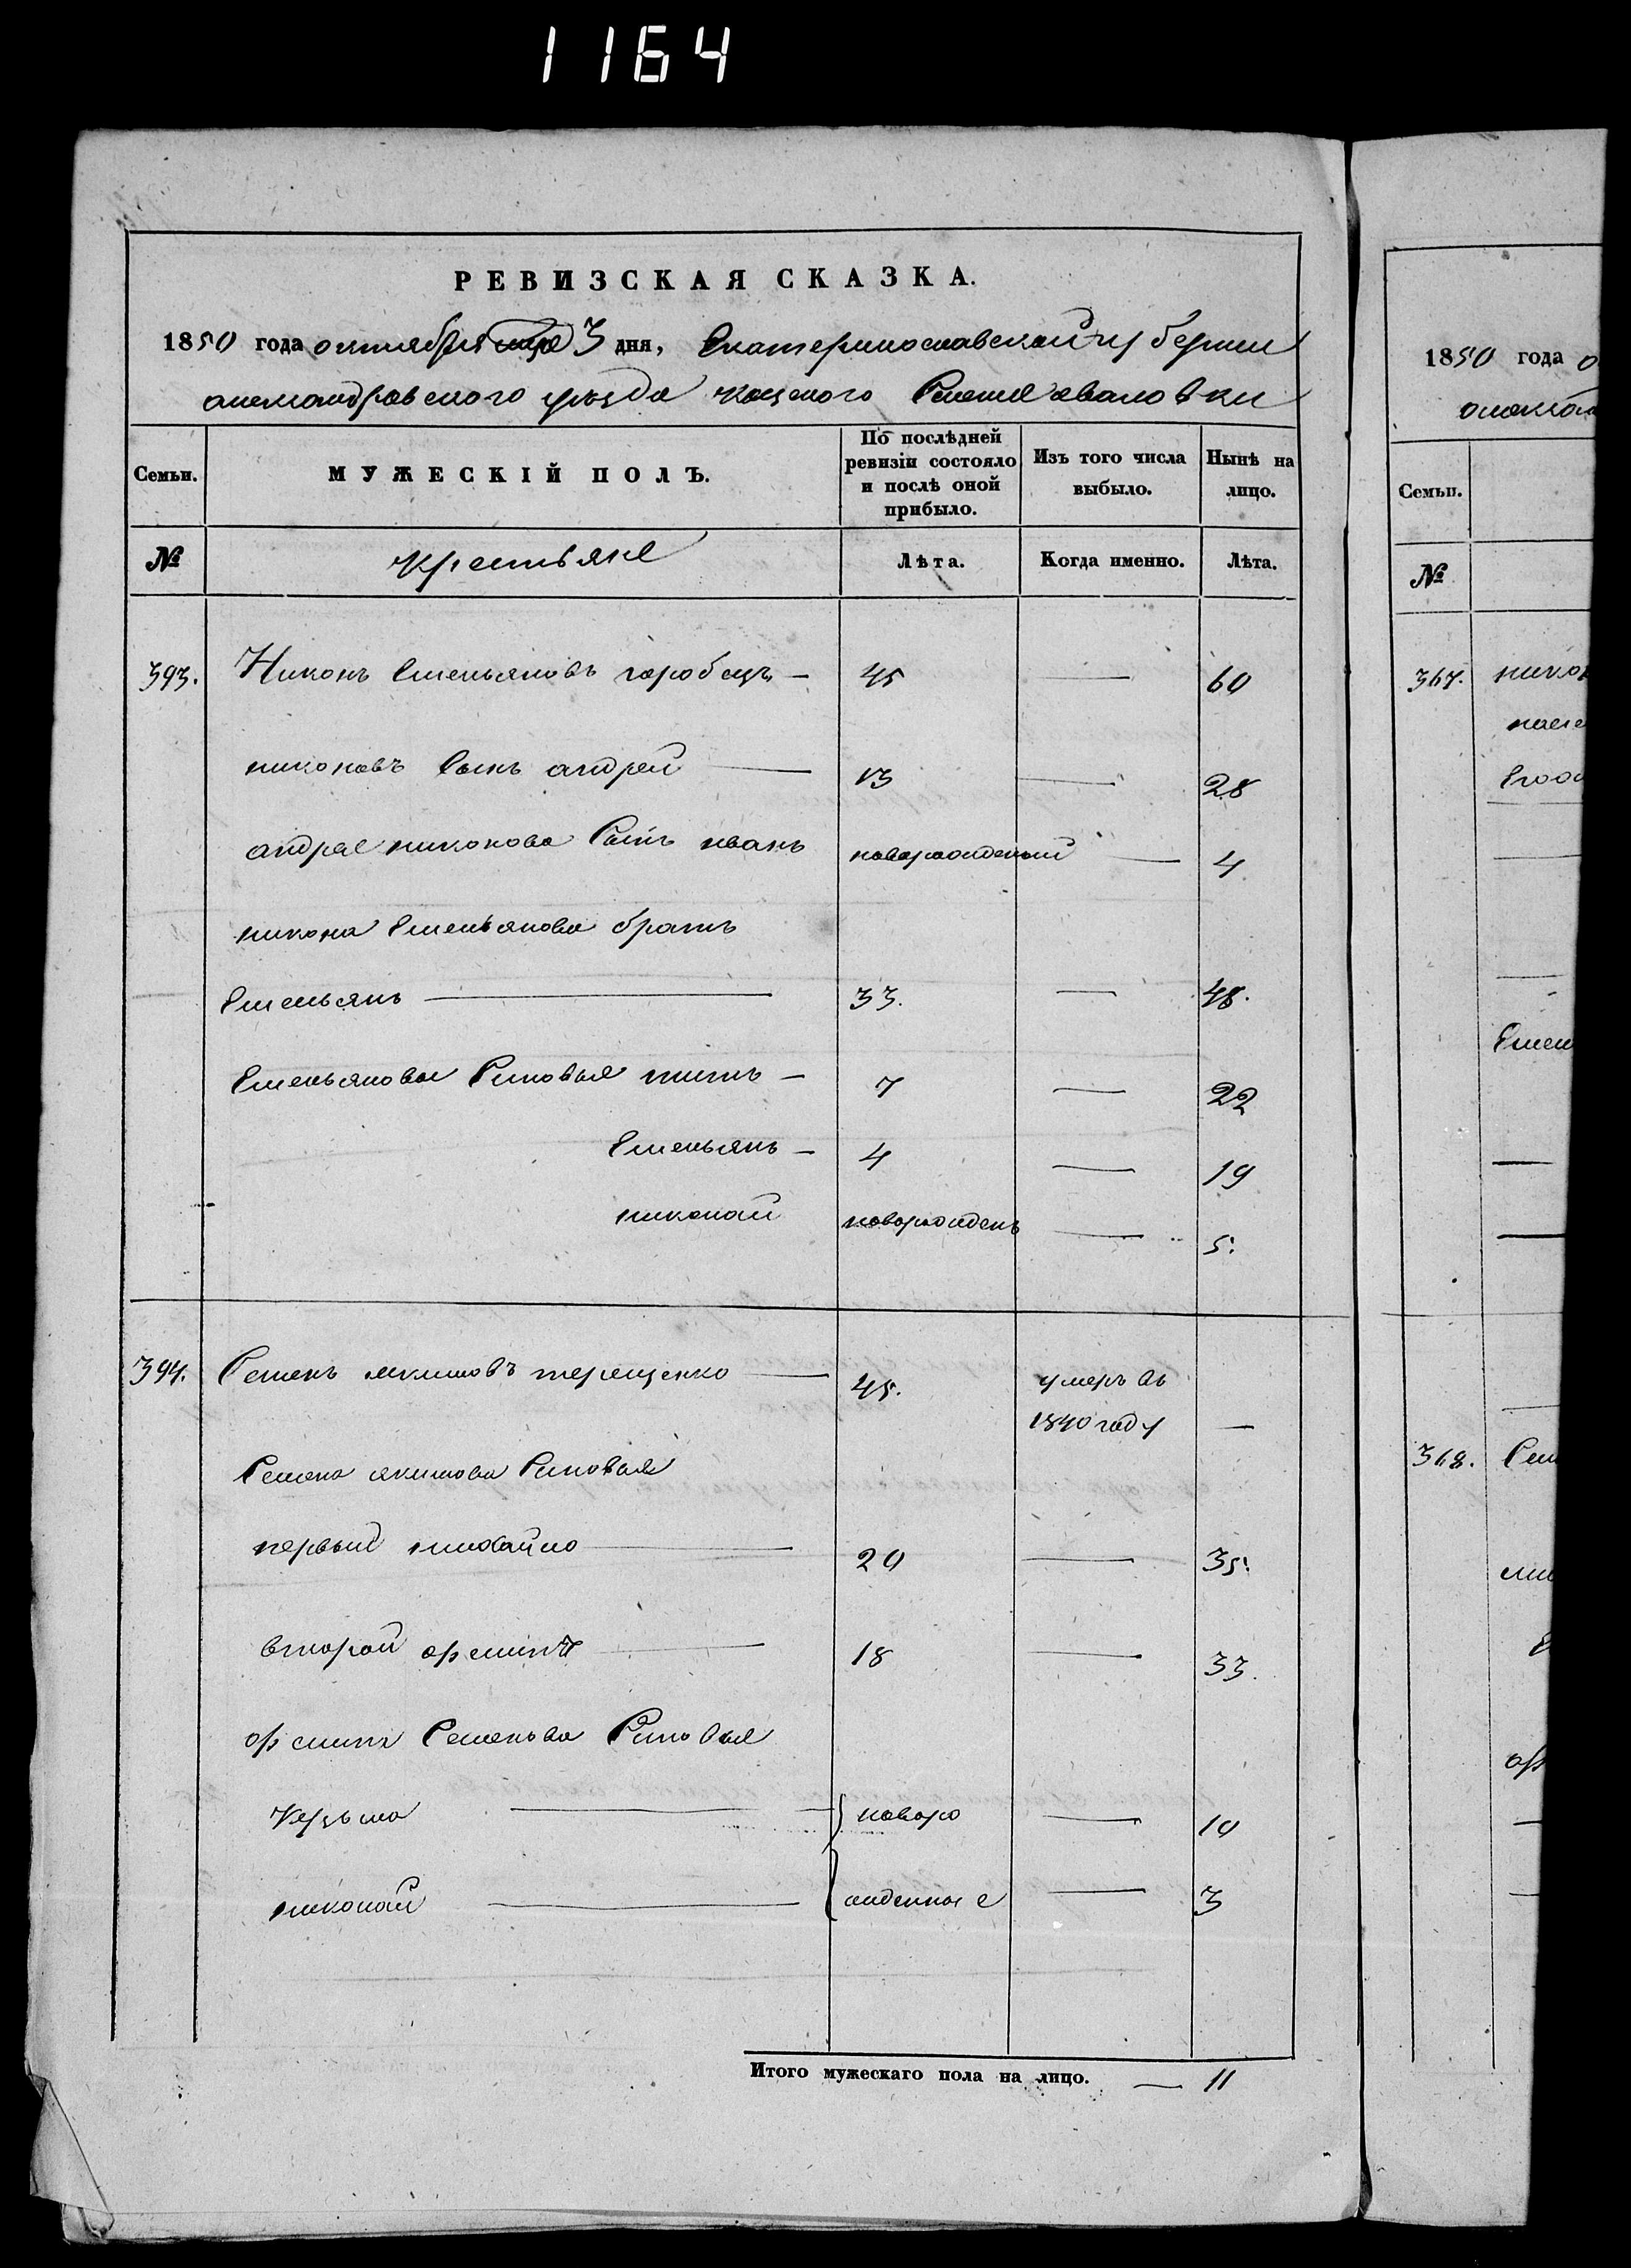 1164
РЕВИЗСКАЯ СКАЗКА.
1850 года октября 3 дня, Екатеринославской губернии
александровского уезда села
Семьи.
МУЖЕСКІЙ ПОЛЪ.
По послѣдней ревизіи состояло и послѣ оной прибыло.
Изъ того числа выбыло.
Нынѣ на лицо.
№
крестьяне
Лѣта.
Когда именно.
Лѣта.
393. Никонъ Емельяновъ горобецъ — 45 — 60
никоновъ сынъ андрей — 13 — 28
андрея никонова сынъ иванъ новорожденый — 4
никона Емельянова братъ
Емельянъ — 33. — 48.
Емельяновы Сыновья титъ — 7 — 22
Емельянъ — 4 — 19
николай новорожденъ — 5.
394. Семенъ якимовъ терещенко — 45. умеръ въ
1840 году —
Семена якимова Сыновья
первый михайло — 20 — 35.
второй архипъ — 18 — 33.
архипа Семенова Сыновья
Кузьма — новоро — 10
николай — жденные — 3
Итого мужескаго пола на лицо. — 11
1850 года о
Семьи.
№
367. нико
Емел
368. Сем